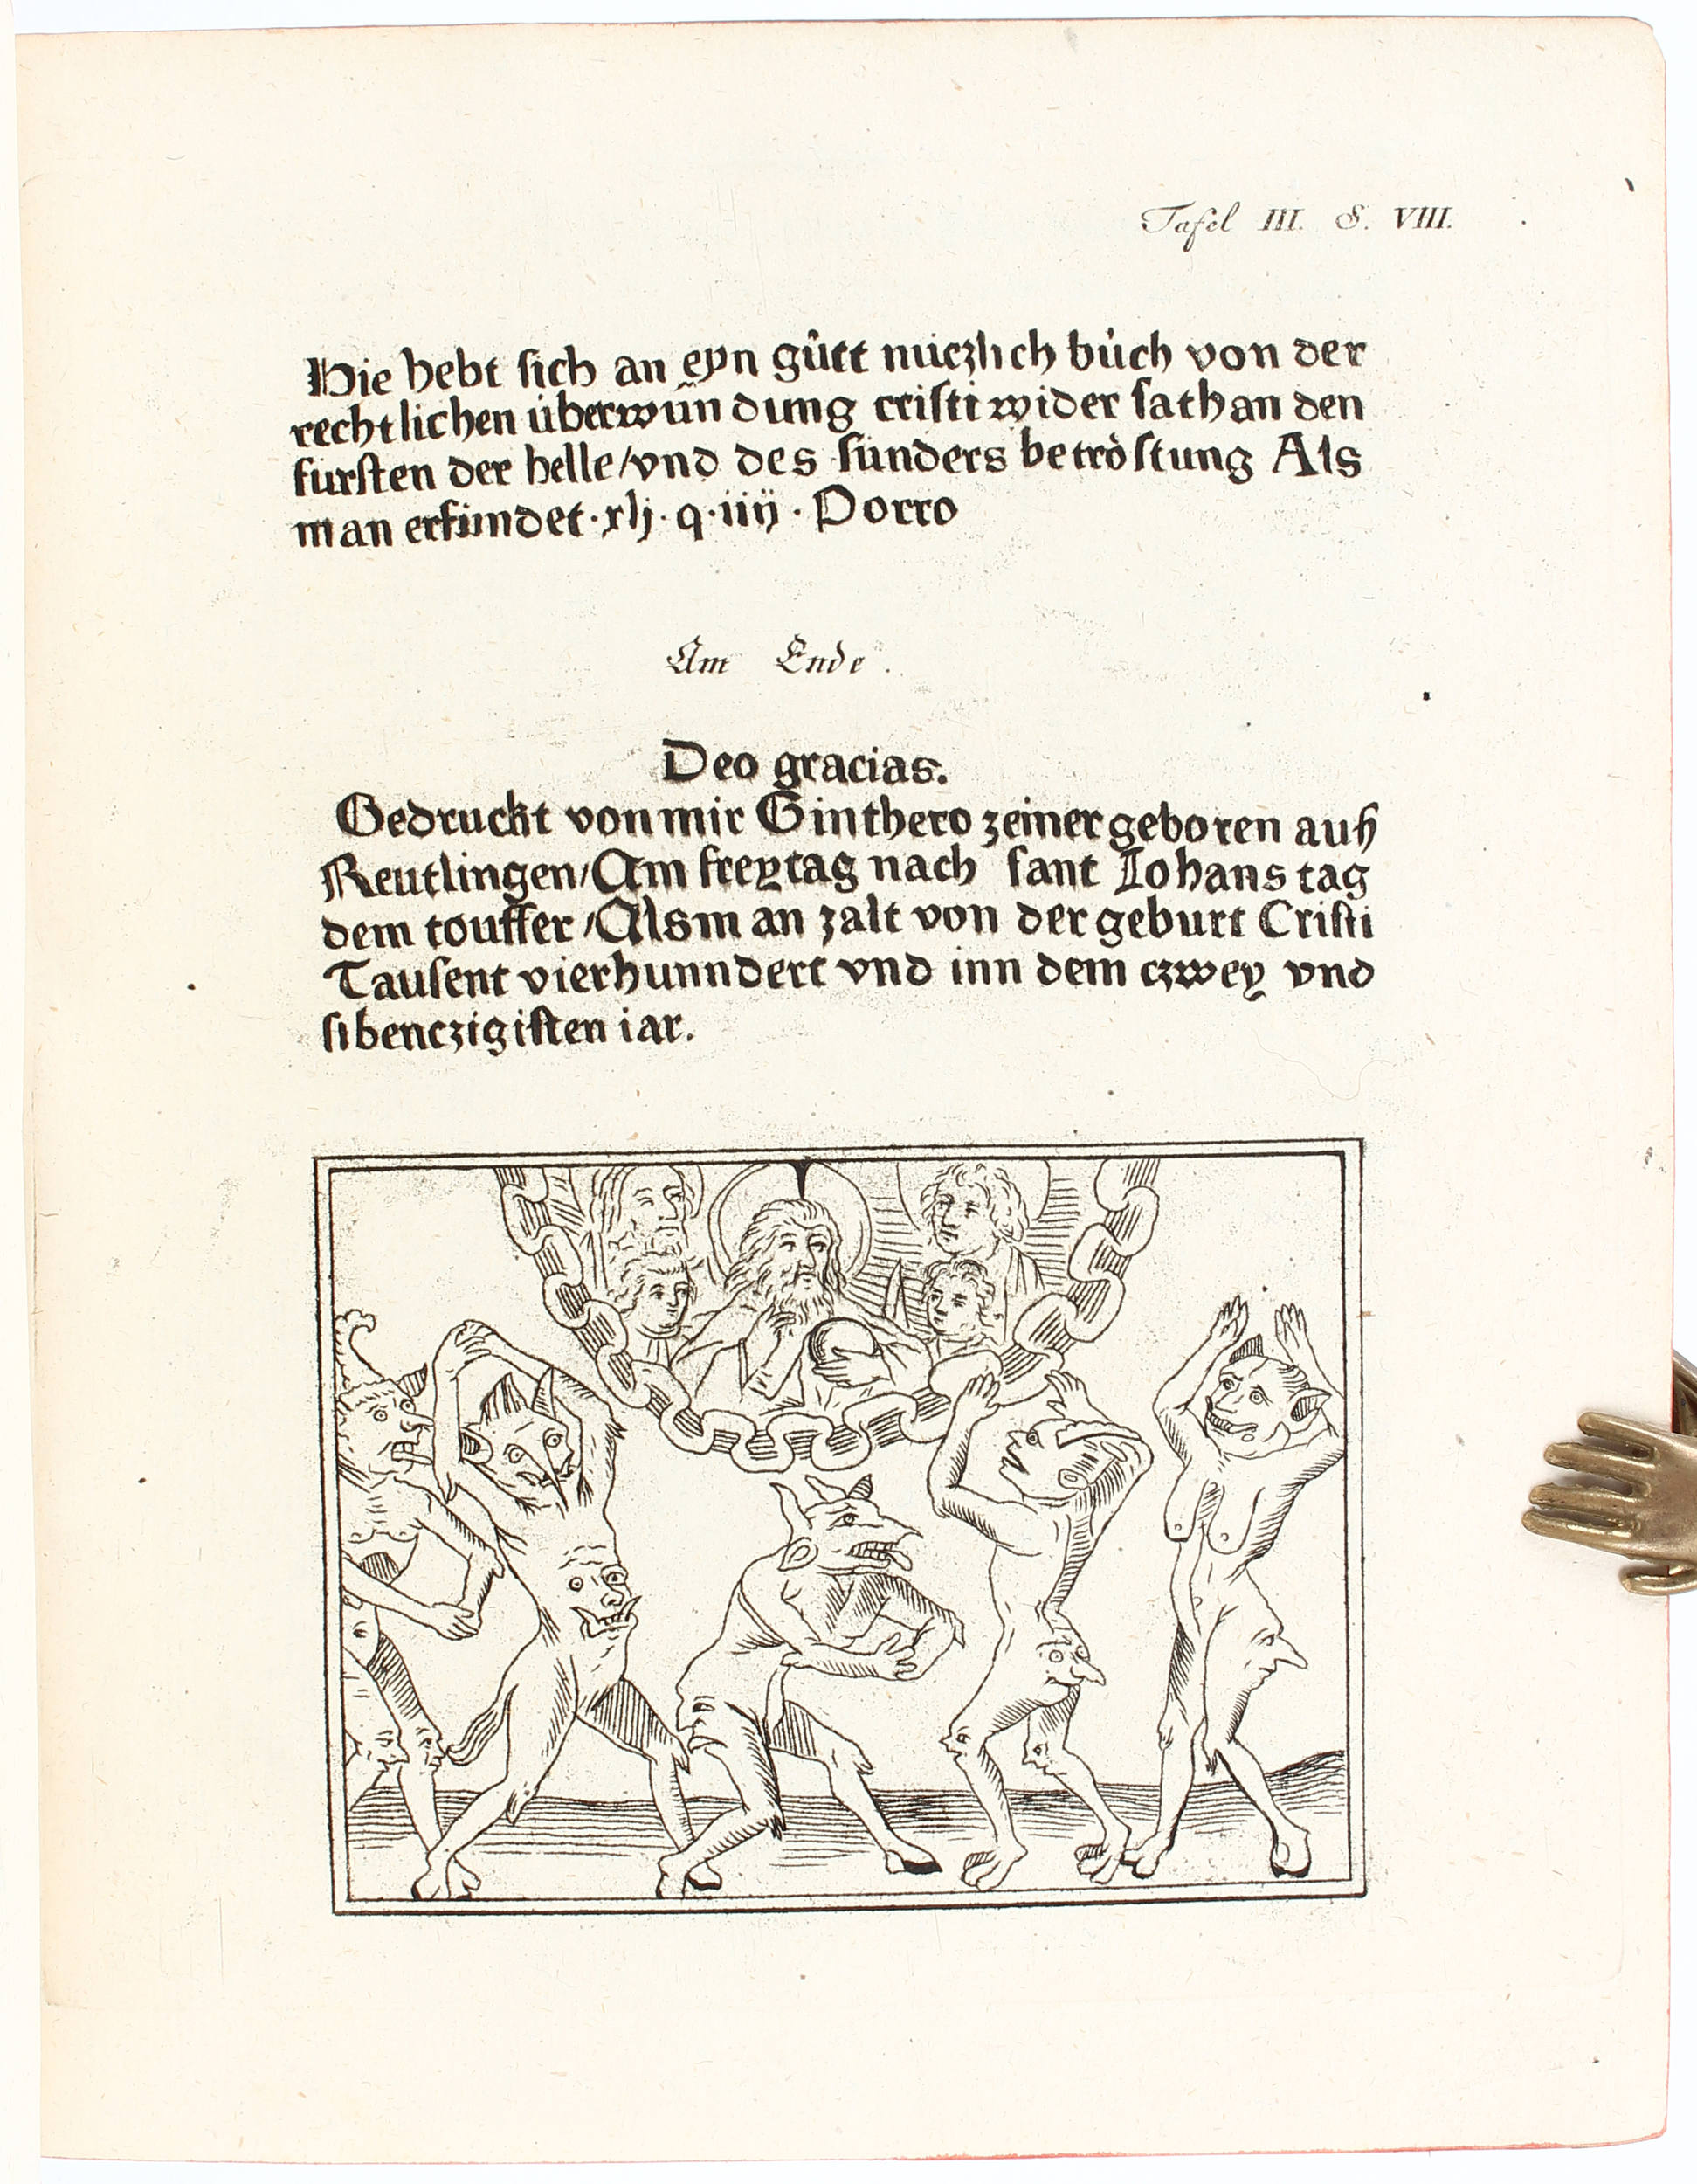 Tafel III. S. VIII.
Hie hebt sich an eyn gůtt nüczlich bůch von der
rechtlichen überwün̄dung cristi wider sathan den
fürsten der helle/vnd des sünders betröstung Als
man erfindet·xlj·q·iiij·Porro
Am Ende.
Deo gracias.
Gedruckt von mir Ginthero zeiner geboren auß
Reutlingen/Am freytag nach sant Iohans tag
dem touffer/Als man zalt von der geburt Cristi
Tausent vierhunndert vnd inn dem czwey vnd
sibenczigisten iar.